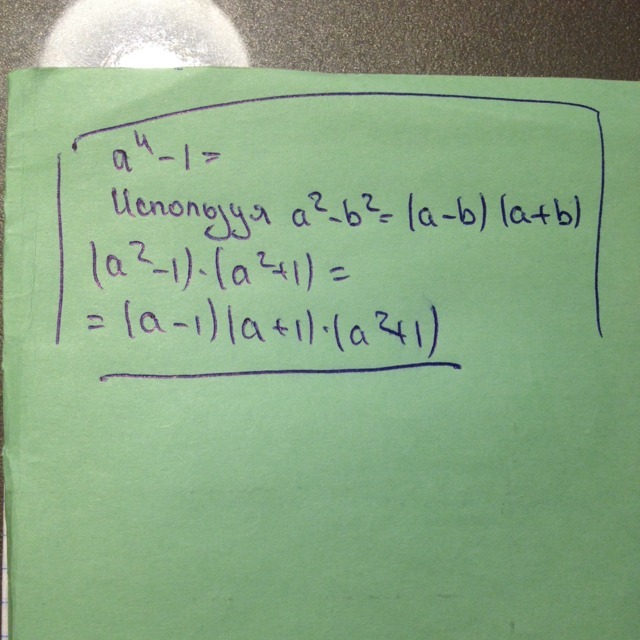 a⁴-1=
Используя a²-b²=(a-b)(a+b)
(a²-1)·(a²+1)=
=(a-1)(a+1)·(a²+1)